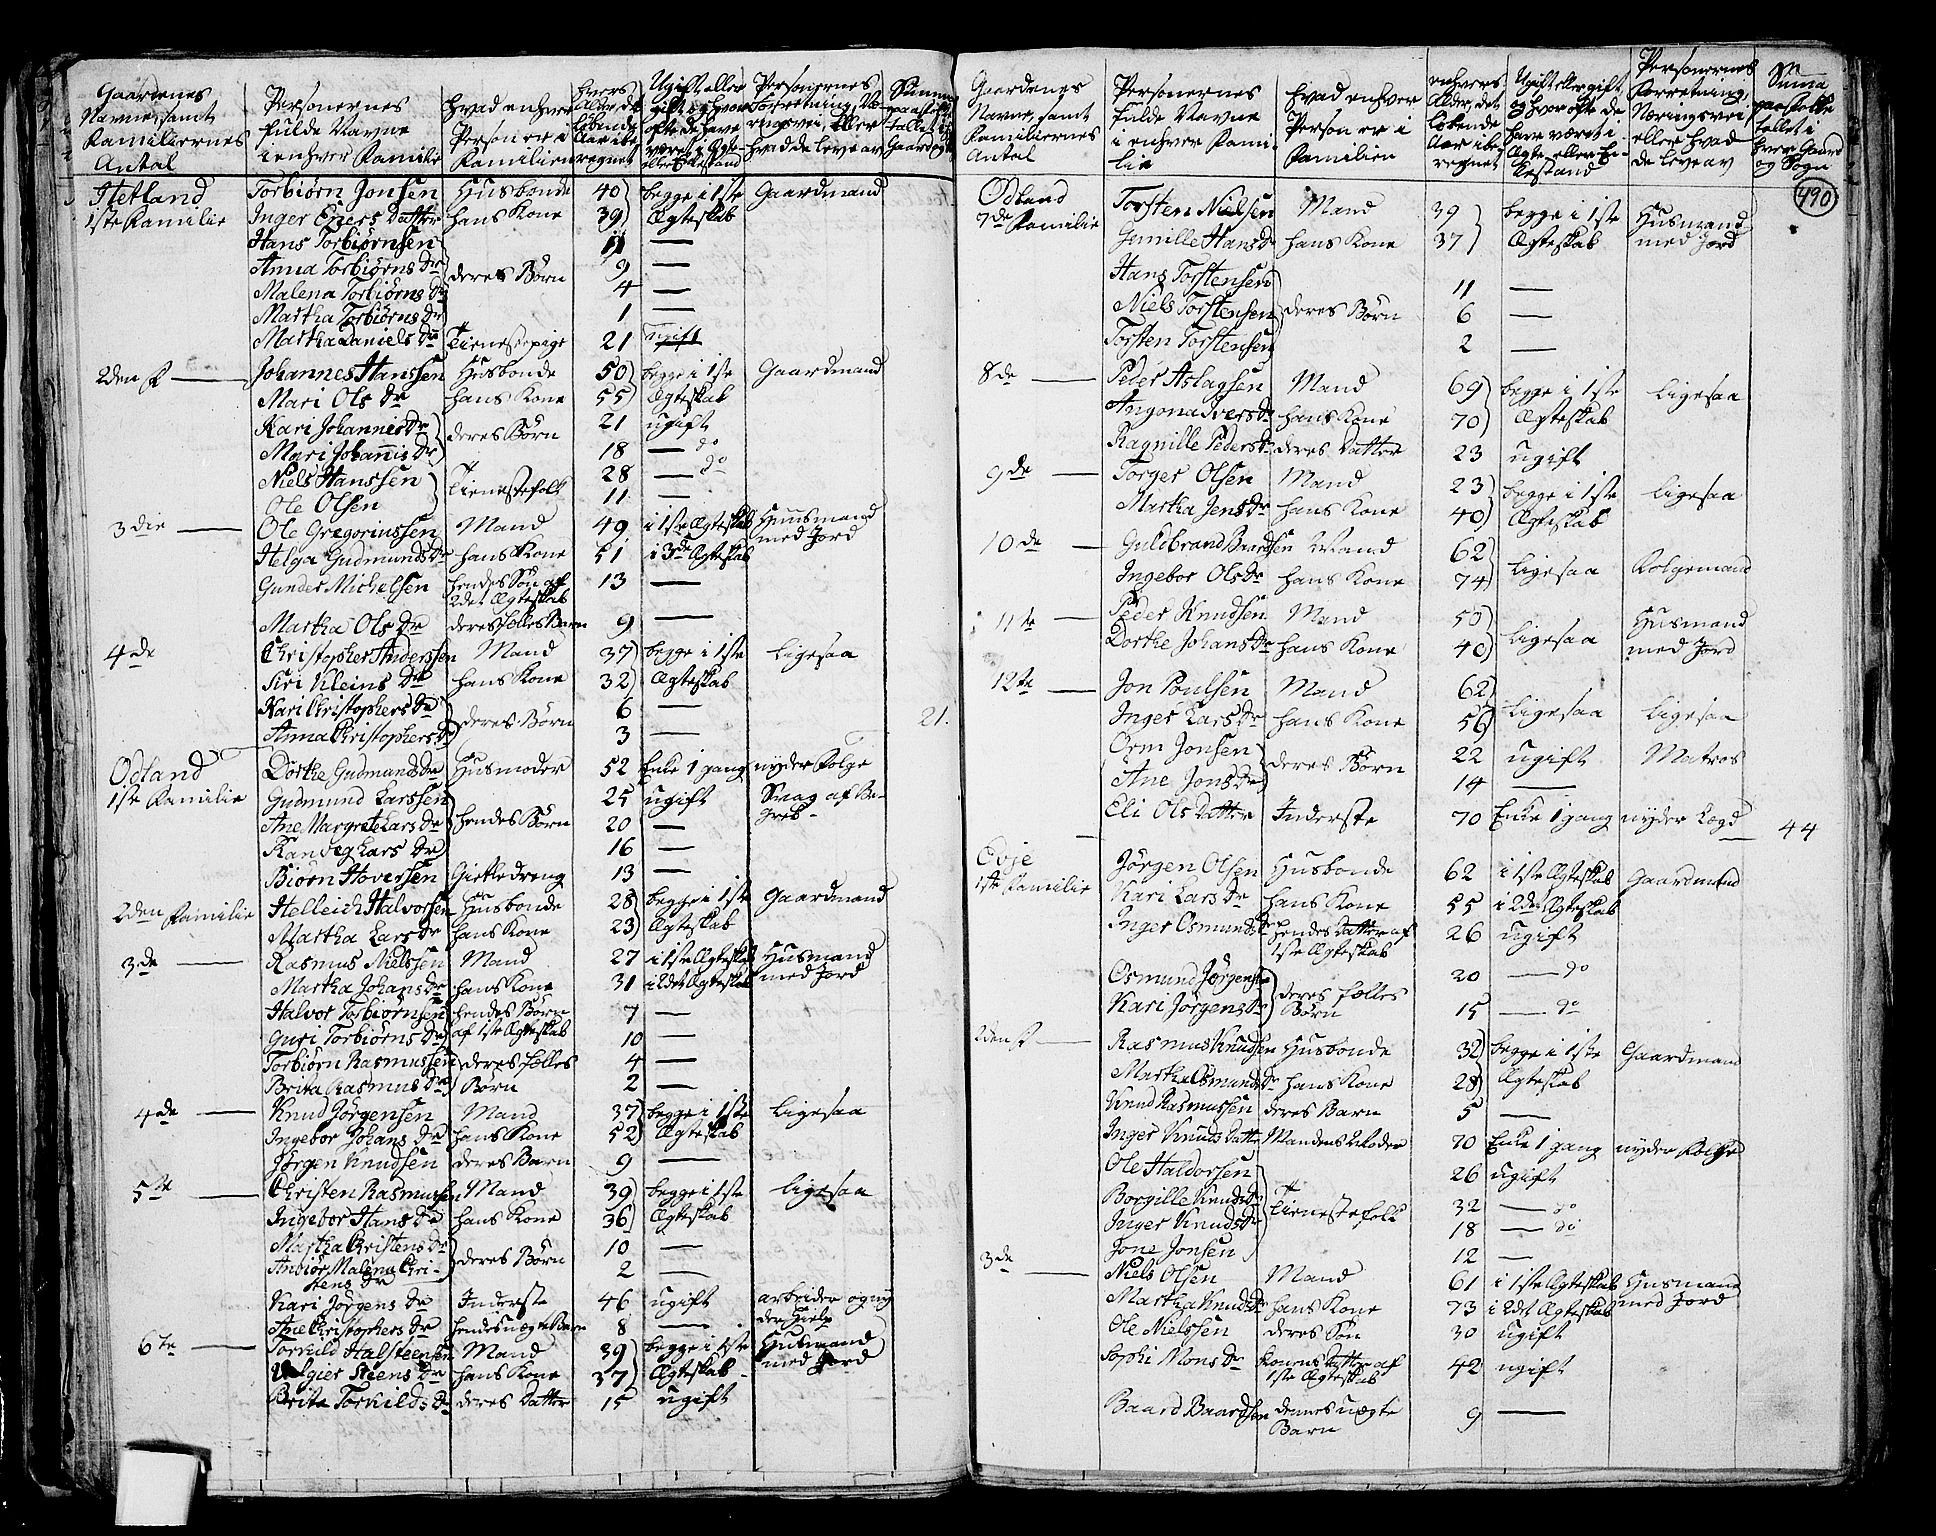 Gaardenes Navne, samt Familiernes Antal | Personernes fulde Navne i enhver Familie | Hvad enhver Person er i Familien | Personernes Forretning, Næringsvei, eller hvad de leve av
Hetland Torbiørn Jonsen Husbonde 40 begge i 1ste Gaardmand
1ste Familie Inger Eners Datter hans Kone 39 Ægteskab
Hans Torbiørnsen 11 —
Anna Torbiørns Dr deres Børn 9 —
Malena Torbiørns Dr 4 —
Martha Torbiørns Dr 1 —
Martha Daniels Dr Tienestepige 21 ugift
2den F — Johannes Hanssen Husbonde 50 begge i 1ste Gaardmand
Mari Ols Dr hans Kone 55 Ægteskab
Kari Johannis Dr deres Børn 21 ugift
Mari Johannis Dr 18 — do
Niels Hanssen Tienestefolk 28 — do
Ole Olsen 11 —
3die — Ole Gregoriussen Mand 49 i 1ste Ægteskab Huusmand
Helga Gudmunds Dr hans Kone 51 i 3de Ægteskab med Jord
Gunder Michelsen hendes Søn af 2det Ægteskab 13 —
Martha Ols Dr deres fælles Barn 9 —
4de Christopher Anderssen Mand 37 begge i 1ste Ligesaa
Siri Kleins Dr hans Kone 32 Ægteskab
Kari Christophers Dr deres Børn 6 —
Anna Christophers Dr 3 — 21.
Odland Dorthe Gudmands Dr Husmoder 52 Enke 1 gang nyder Folge
1ste Familie Gudmund Larssen 25 ugift Svag af Be-
Ane Margrete Lars Dr hendes Børn 20 — greb -
Randeg Lars Dr 16 —
Biørn Hoversen Giettedreng 13 —
2den Familie Helleich Halvorsen Husbonde 28 begge i 1ste Gaardmand
Martha Lars Dr hans Kone 23 Ægteskab
3de — Rasmus Nielssen Mand 27 i 1ste Ægteskab Husmand
Martha Johans Dr hans Kone 31 i 2det Ægteskab med Jord
Halvor Torbiørnsen hendes Børn 7 —
Guri Torbiørns Dr af 1ste Ægteskab 10 —
Torbiørn Rasmussen deres fælles 4 —
Brita Rasmus Dr Børn 2 —
4de — Knud Jørgensen Mand 37 begge i 1ste Ligesaa
Ingebor Johans Dr hans Kone 52 Ægteskab
Jørgen Knudsen deres Barn 9 —
5te — Christen Rasmussen Mand 39 begge i 1ste Ligesaa
Ingebor Hans Dr hans Kone 36 Ægteskab
Martha Christens Dr deres Børn 10 —
Anbiør Malena Chri- 2 —
stens Dr
Kari Jørgens Dr Inderste 46 ugift arbeider og ny
Ane Christophers Dr hendes uægte Barn 8 — der Hielp
6te — Torkild Halsteensen Mand 39 begge i 1ste Husmand
Steens Dr hans Kone 37 Ægteskab med Jord
Brita Torkilds Dr deres Datter 15 ugift
Gaardenes Navne, samt Familiernes Antal | Personernes fulde Navne i enhver Familie | Hvad enhver Person er i Familien | enhvers Alder, det løbende Aar iberegnet | Ugift eller gift, og hvor ofte de have været i Ægte- eller Enkestand | Personernes Forretning, Næringsvei eller hvad de leve av | Suma paa Folketallet i hver Gaard og Sogn
490
Odland Torsten Nielsen Mand 39 begge i 1ste Husmand
7de Familie Gunille Hans Dr hans Kone 37 Ægteskab med Jord
Hans Torstensen 11 —
Niels Torstensen deres Børn 6 —
Torsten Torstensen 2 —
8de — Peder Aslagsen Mand 69 begge i 1ste Ligesaa
Angona Ivers Dr hans Kone 70 Ægteskab
Ragnille Peders Dr deres Datter 23 ugift
9de — Torger Olsen Mand 23 begge i 1ste Ligesaa
Martha Jens Dr hans Kone 40 Ægteskab
10de — Guldbrand Baardsen Mand 62 Ligesaa Folgemand
Ingebor Ols Dr hans Kone 74
11te — Peder Knudsen Mand 50 Ligesaa Husmand
Dorthe Johans Dr hans Kone 40 med Jord
12te — Jon Poulsen Mand 62 Ligesaa Ligesaa
Inger Lars Dr hans Kone 56
Orm Jonsen deres Børn 22 ugift Matros
Ane Jons Dr 14 —
Eli Ols Datter Inderste 70 Enke 1 gang nyder Lægd 44
Ovje Jørgen Olsen Husbonde 62 i 1ste Ægteskab Gaardmand
1ste Familie Kari Lars Dr hans Kone 55 i 2det Ægteskab
Inger Osmunds Dr hendes Datter af 1ste Ægteskab 26 ugift
Osmund Jørgensen deres fælles 20 — do
Kari Jørgens Dr Børn 15 — do
2den F — Rasmus Knudsen Husbonde 32 begge i 1ste Gaardmand
Martha Osmunds Dr hans Kone 28 Ægteskab
Knud Rasmussen deres Barn 5 —
Inger Knuds Datter Mandens Moder 70 Enke 1 gang nyder Folge
Ole Halvorsen 26 ugift
Borgille Knuds Dr Tienestefolk 32 — do
Inger Knuds Dr 18 — do
Jone Jonsen 12 —
3de — Niels Olsen Mand 61 i 1ste Ægteskab Husmand
Martha Knuds Dr hans Kone 73 i 2det Ægteskab med Jord
Ole Nielssen deres Søn 30 ugift
Sophi Mons Dr Konens Datter af 1ste Ægteskab 42 ugift
Baard Baardsen dennes uægte Barn 9 —